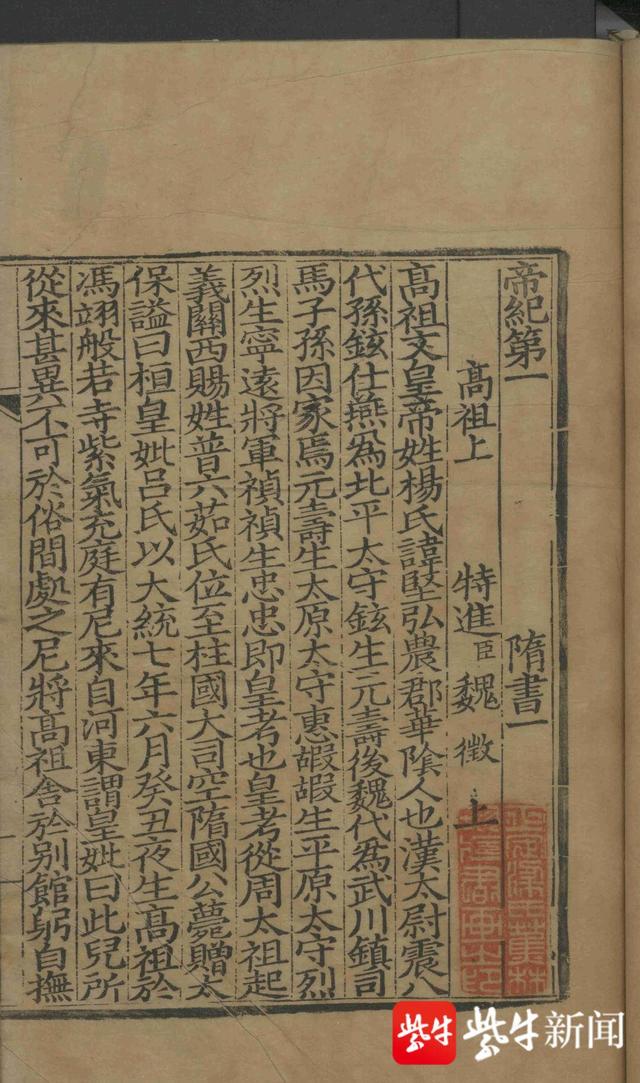 帝紀第一 隋書一
高祖上 特進臣魏徵上
高祖文皇帝姓楊氏諱堅弘農郡華陰人也漢太尉震八
代孫鉉仕燕為北平太守鉉生元壽後魏代為武川鎮司
馬子孫因家焉元壽生太原太守惠嘏嘏生平原太守烈
烈生寧遠將軍禎禎生忠忠即皇考也皇考從周太祖起
義關西賜姓普六茹氏位至柱國大司空隋國公薨贈太
保謚曰桓皇妣呂氏以大統七年六月癸丑夜生高祖於
馮翊般若寺紫氣充庭有尼來自河東謂皇妣曰此兒所
從來甚異不可於俗間處之尼將高祖舍於別館躬自撫
紫牛 紫牛新闻